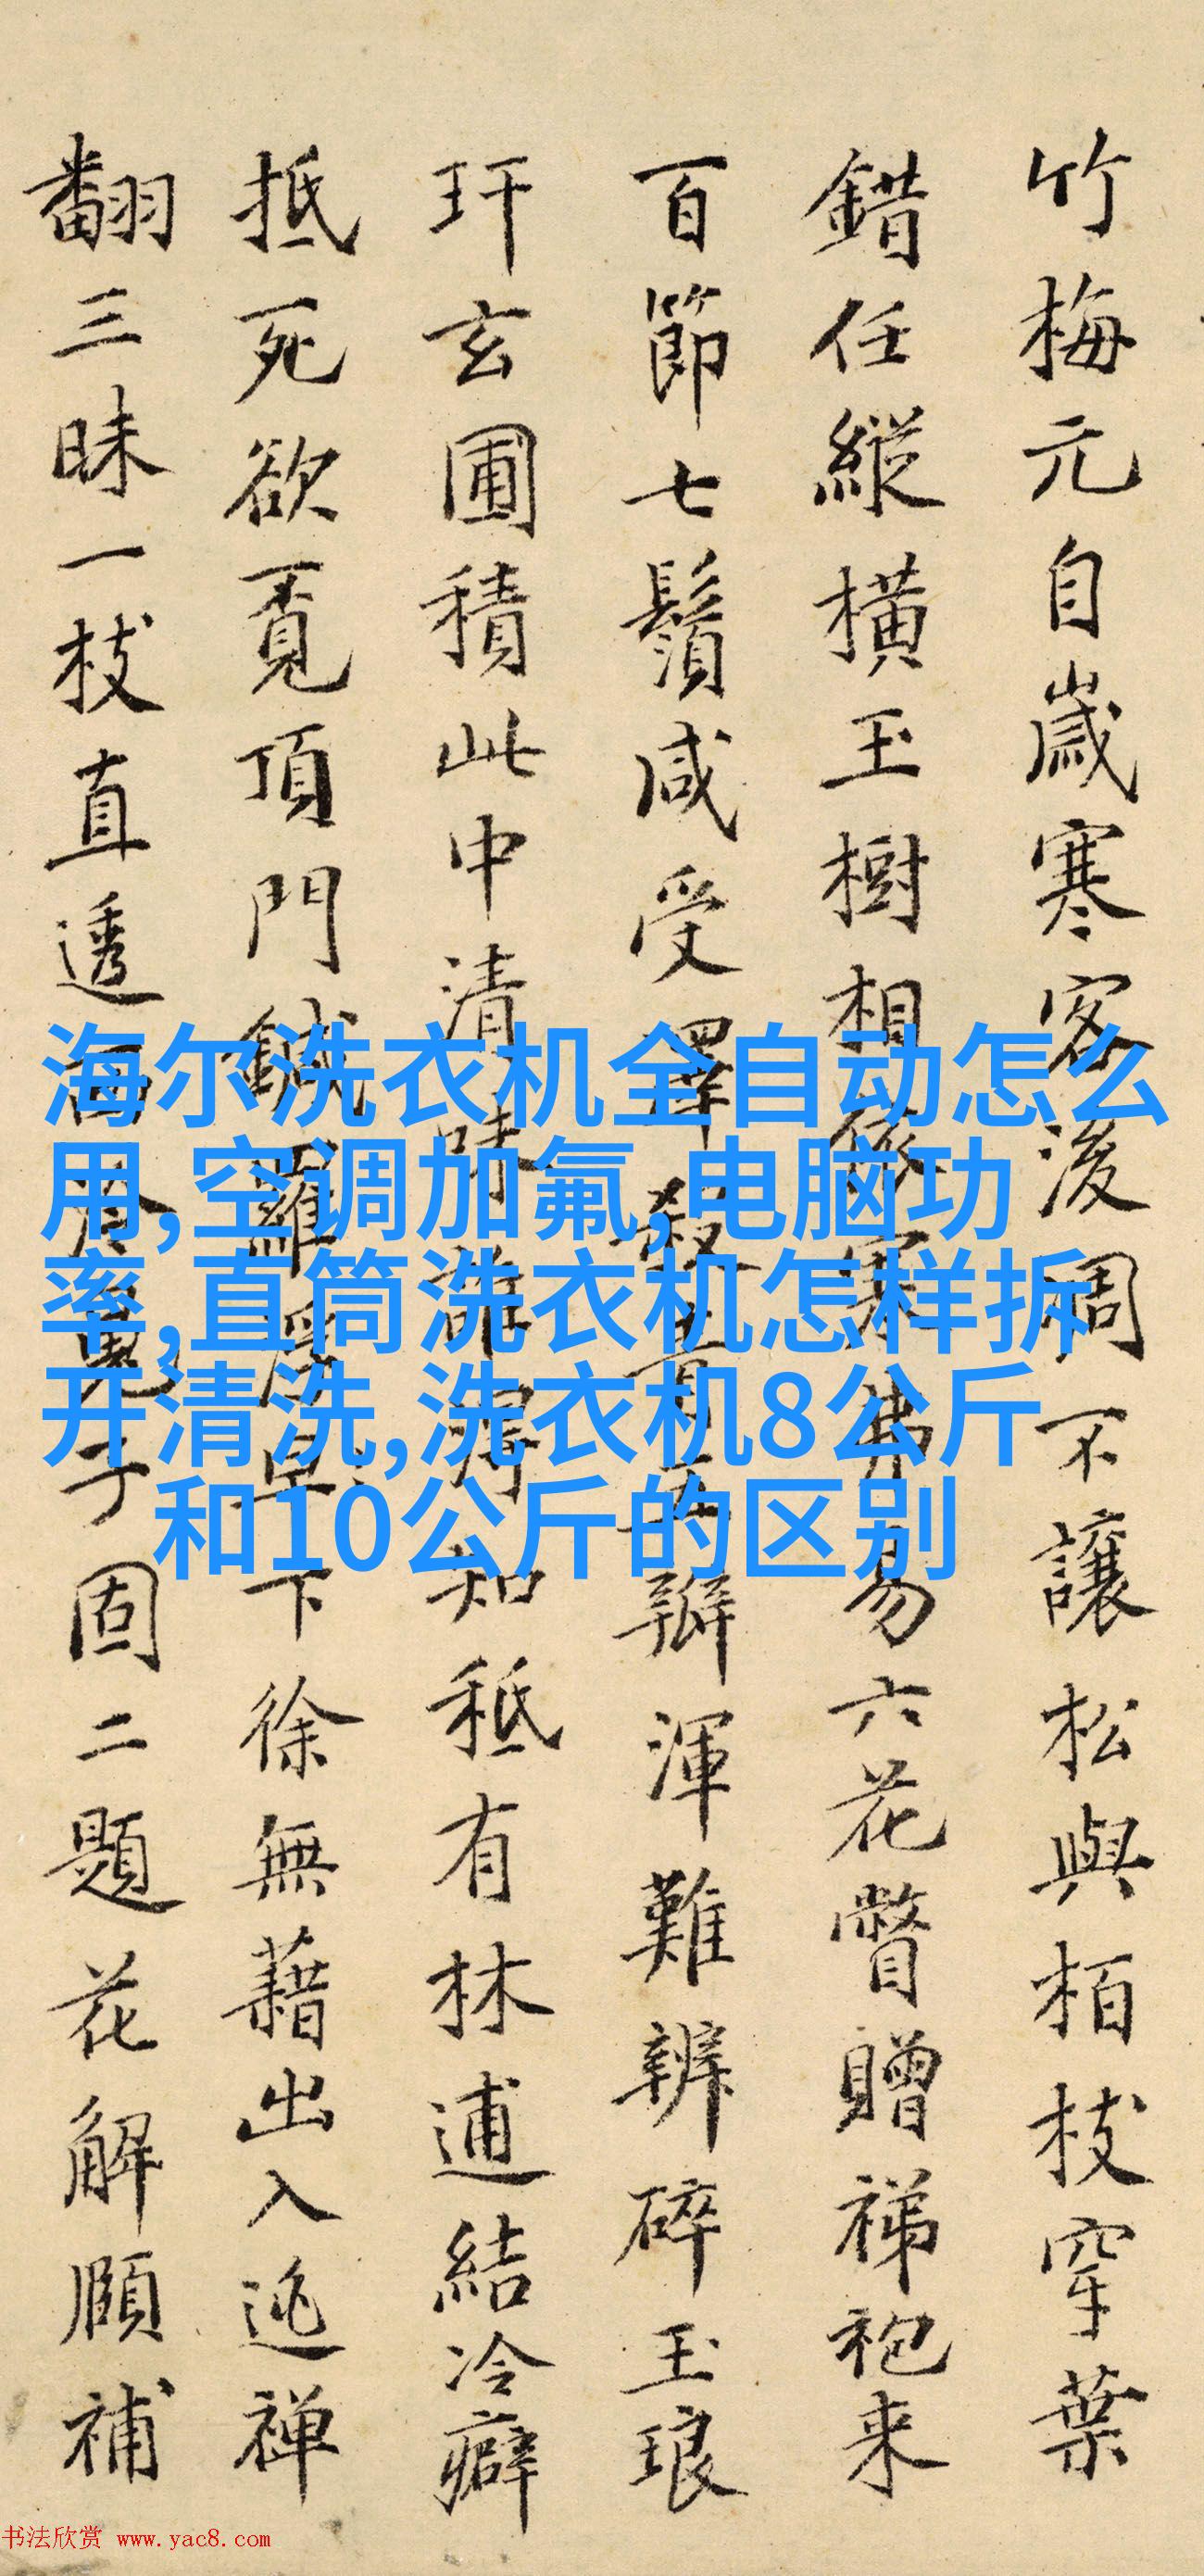 竹梅元自歲寒客後凋不讓松與栢枝穿葉
錯任縱橫玉樹相依寒弗易六花瞥贈祶袍来
百節七鬚咸受釋殺青五瓣渾難辨碎玉琅
玕玄圃積此中清味誰得知秪有林逋結冷癖
抵死欲覔頂門鍼羅浮下徐無藉出入逃禅
翻三昧一枝直透子固二題花解頤補
海尔洗衣机全自动怎么
用,空调加氟,电脑功
率,直筒洗衣机怎样拆
开清洗,洗衣机8公斤
和10公斤的区别
书法欣赏 www.yac8.com